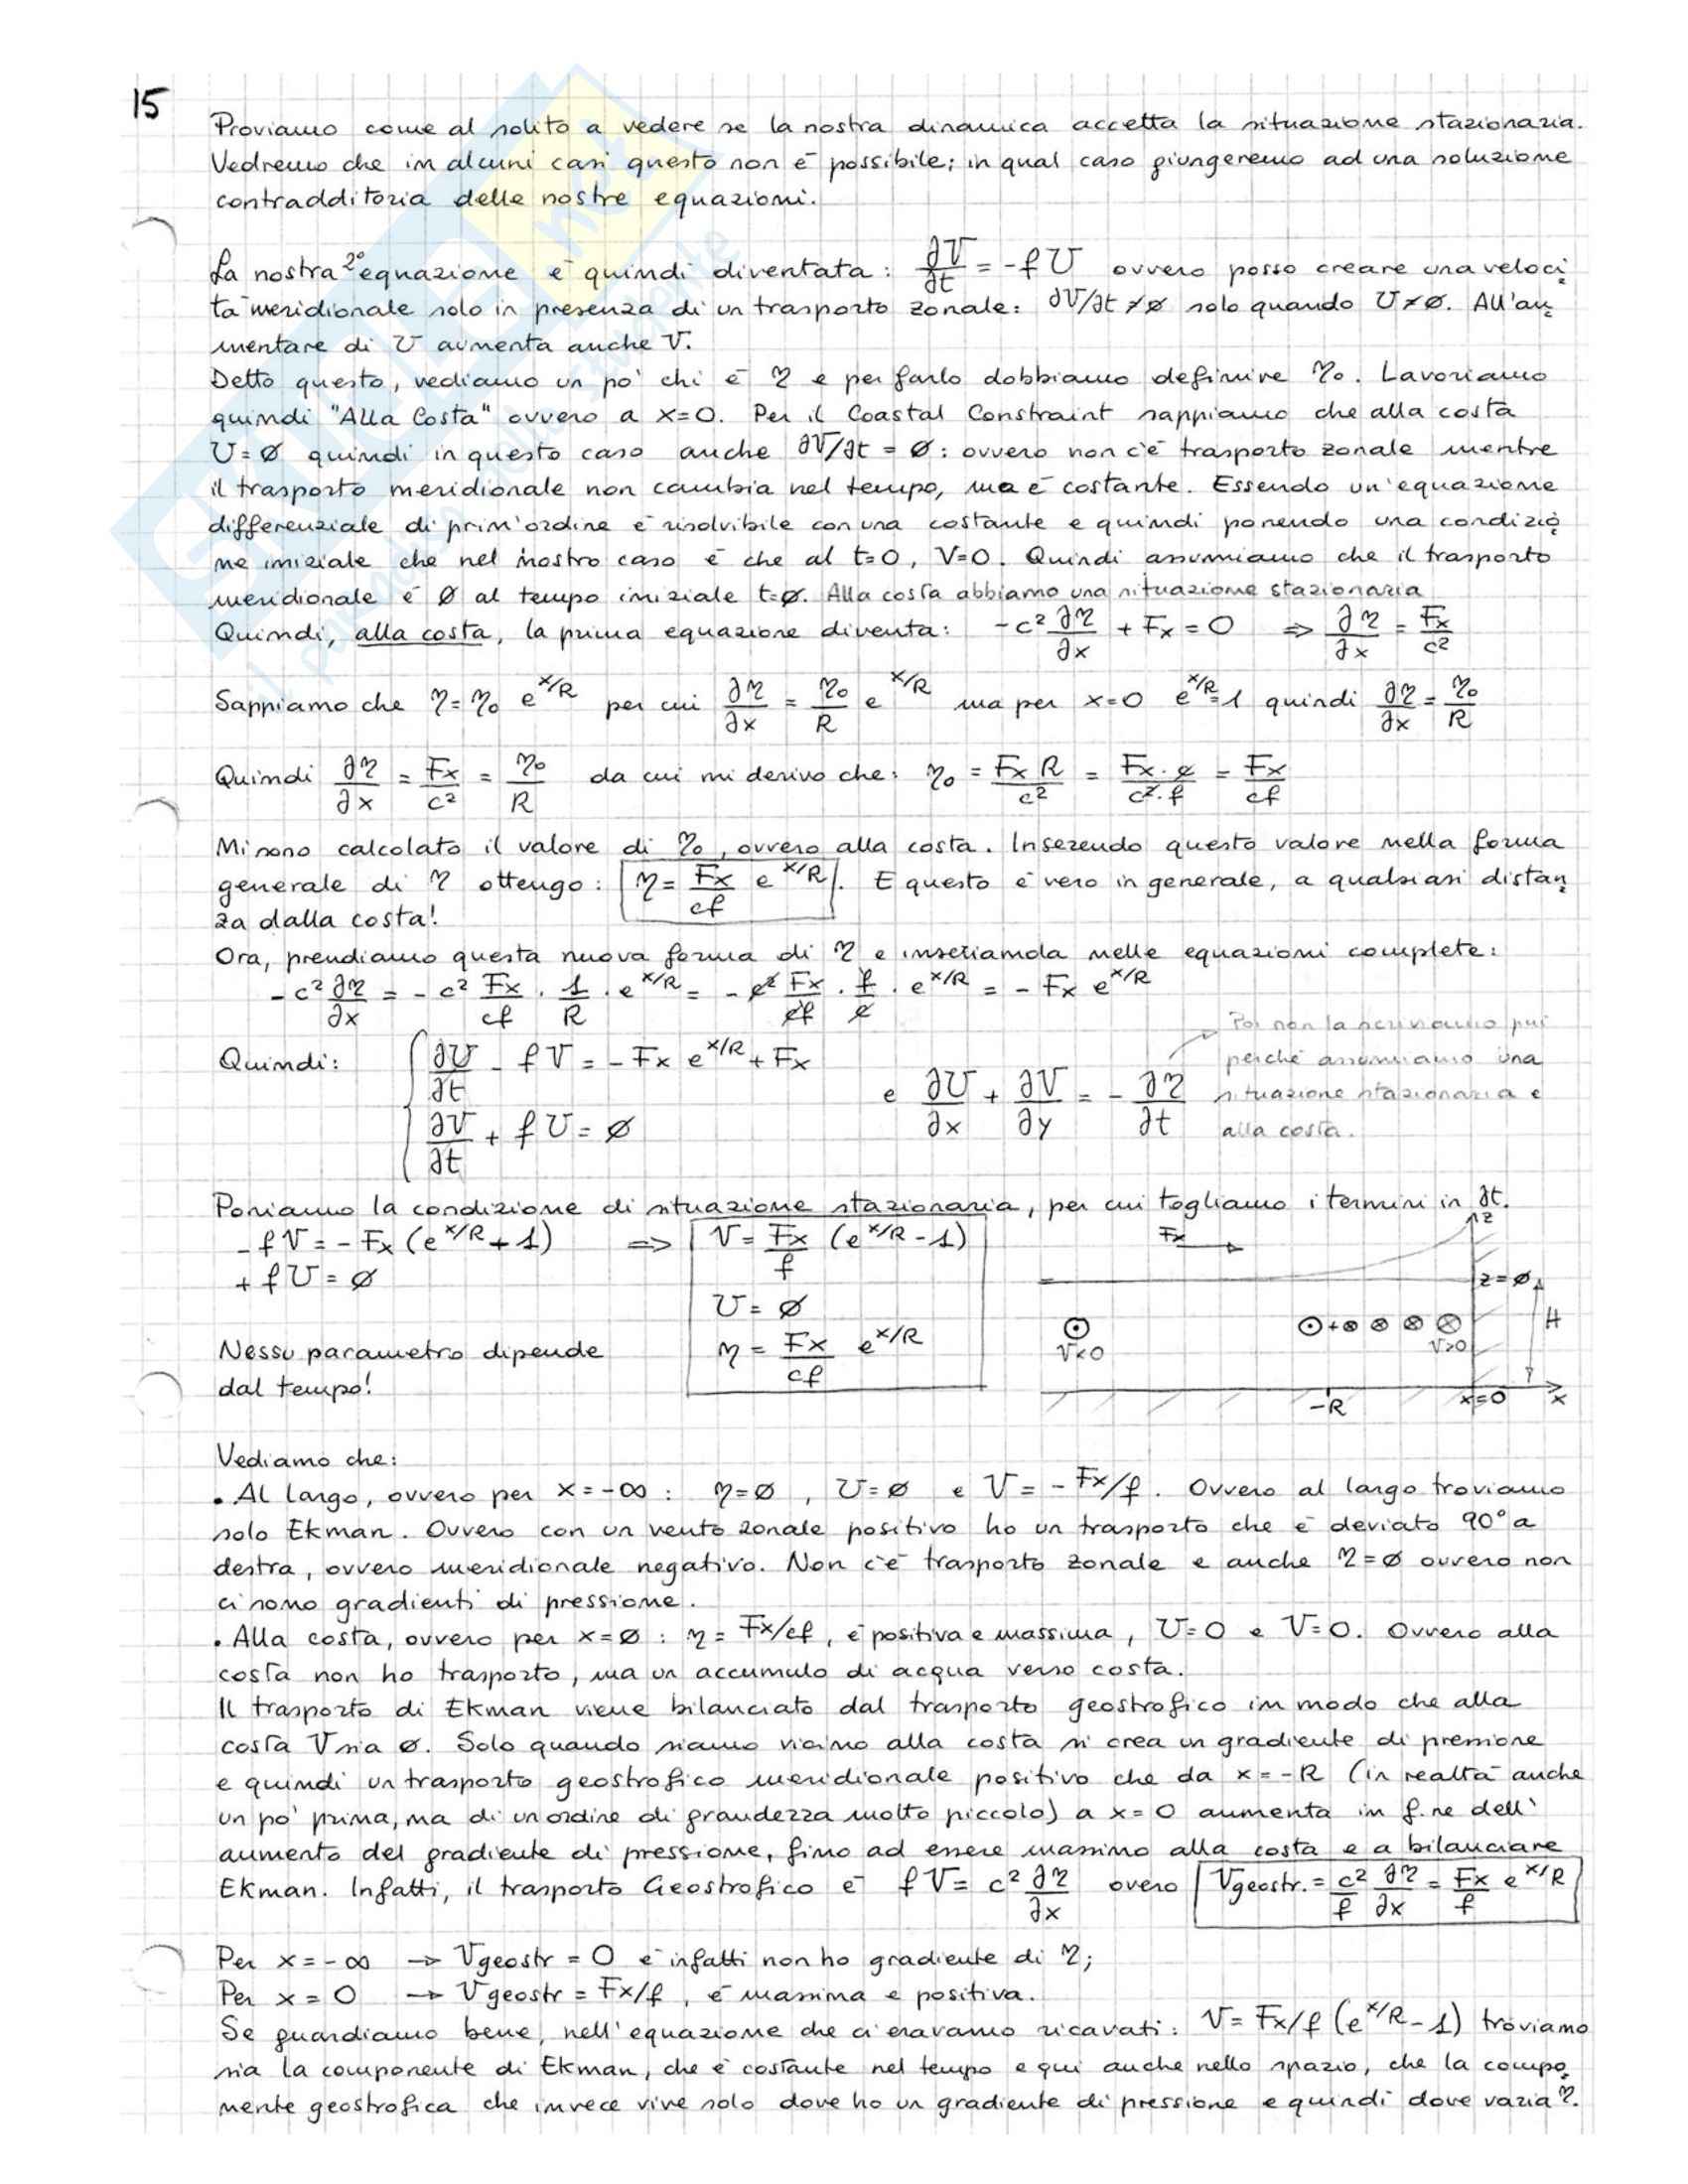 15
Proviamo come al solito a vedere se la nostra dinamica accetta la situazione stazionaria.
Vedremo che in alcuni casi questo non è possibile; in qual caso giungeremo ad una soluzione
contraddittoria delle nostre equazioni.
La nostra 2° equazione è quindi diventata: ∂V/∂t = -fU ovvero posso creare una veloci
tà meridionale solo in presenza di un trasporto zonale: ∂V/∂t ≠ ∅ solo quando U≠∅. All'au
mentare di U aumenta anche V.
Detto questo, vediamo un po' chi è η e per farlo dobbiamo definire η₀. Lavoriamo
quindi "Alla Costa" ovvero a x=0. Per il Coastal Constraint sappiamo che alla costa
U=∅ quindi in questo caso anche ∂V/∂t = ∅: ovvero non c'è trasporto zonale mentre
il trasporto meridionale non cambia nel tempo, ma è costante. Essendo un'equazione
differenziale di prim'ordine è risolvibile con una costante e quindi ponendo una condizio
ne iniziale che nel nostro caso è che al t=0, V=0. Quindi assumiamo che il trasporto
meridionale è ∅ al tempo iniziale t=∅. Alla costa abbiamo una situazione stazionaria
Quindi, alla costa, la prima equazione diventa: -c² ∂η/∂x + Fx = 0 ⇒ ∂η/∂x = Fx/c²
Sappiamo che η=η₀ e^x/R per cui ∂η/∂x = η₀/R e^x/R ma per x=0 e^x/R=1 quindi ∂η/∂x = η₀/R
Quindi ∂η/∂x = Fx/c² = η₀/R da cui mi derivo che: η₀ = Fx R/c² = Fx·c/c²·f = Fx/cf
Mi sono calcolato il valore di η₀, ovvero alla costa. Inserendo questo valore nella forma
generale di η ottengo: η = Fx/cf e^x/R. E questo è vero in generale, a qualsiasi distan
za dalla costa!
Ora, prendiamo questa nuova forma di η e inseriamola nelle equazioni complete:
-c² ∂η/∂x = -c² Fx/cf · 1/R · e^x/R = -c² Fx/cf · f/c · e^x/R = -Fx e^x/R
Poi non la scriviamo più
perché assumiamo una
situazione stazionaria e
alla costa.
Quindi: ∂U/∂t - fV = -Fx e^x/R + Fx
e ∂U/∂x + ∂V/∂y = -∂η/∂t
∂V/∂t + fU = ∅
Poniamo la condizione di situazione stazionaria, per cui togliamo i termini in ∂t.
-fV = -Fx (e^x/R + 1) ⇒ V = Fx/f (e^x/R - 1)
+fU = ∅
U = ∅
η = Fx/cf e^x/R
Nessu parametro dipende
dal tempo!
Fx
z
z=∅
H
V<0
⊙+⊗ ⊗ ⊗ ⊗
V>0
-R
x=0
x
Vediamo che:
• Al largo, ovvero per x=-∞: η=∅, U=∅ e V=-Fx/f. Ovvero al largo troviamo
solo Ekman. Ovvero con un vento zonale positivo ho un trasporto che è deviato 90° a
destra, ovvero meridionale negativo. Non c'è trasporto zonale e anche η=∅ ovvero non
ci sono gradienti di pressione.
• Alla costa, ovvero per x=∅: η=Fx/cf, è positiva e massima, U=0 e V=0. Ovvero alla
costa non ho trasporto, ma un accumulo di acqua verso costa.
Il trasporto di Ekman viene bilanciato dal trasporto geostrofico in modo che alla
costa V sia ∅. Solo quando siamo vicino alla costa si crea un gradiente di pressione
e quindi un trasporto geostrofico meridionale positivo che da x=-R (in realtà anche
un po' prima, ma di un ordine di grandezza molto piccolo) a x=0 aumenta in f.ne dell'
aumento del gradiente di pressione, fino ad essere massimo alla costa e a bilanciare
Ekman. Infatti, il trasporto Geostrofico è fV = c² ∂η/∂x overo Vgeostr. = c²/f ∂η/∂x = Fx/f e^x/R
Per x=-∞ → Vgeostr = 0 e infatti non ho gradiente di η;
Per x=0 → Vgeostr = Fx/f, è massima e positiva.
Se guardiamo bene, nell'equazione che ci eravamo ricavati: V=Fx/f (e^x/R - 1) troviamo
sia la componente di Ekman, che è costante nel tempo e qui anche nello spazio, che la compo
nente geostrofica che invece vive solo dove ho un gradiente di pressione e quindi dove varia η.